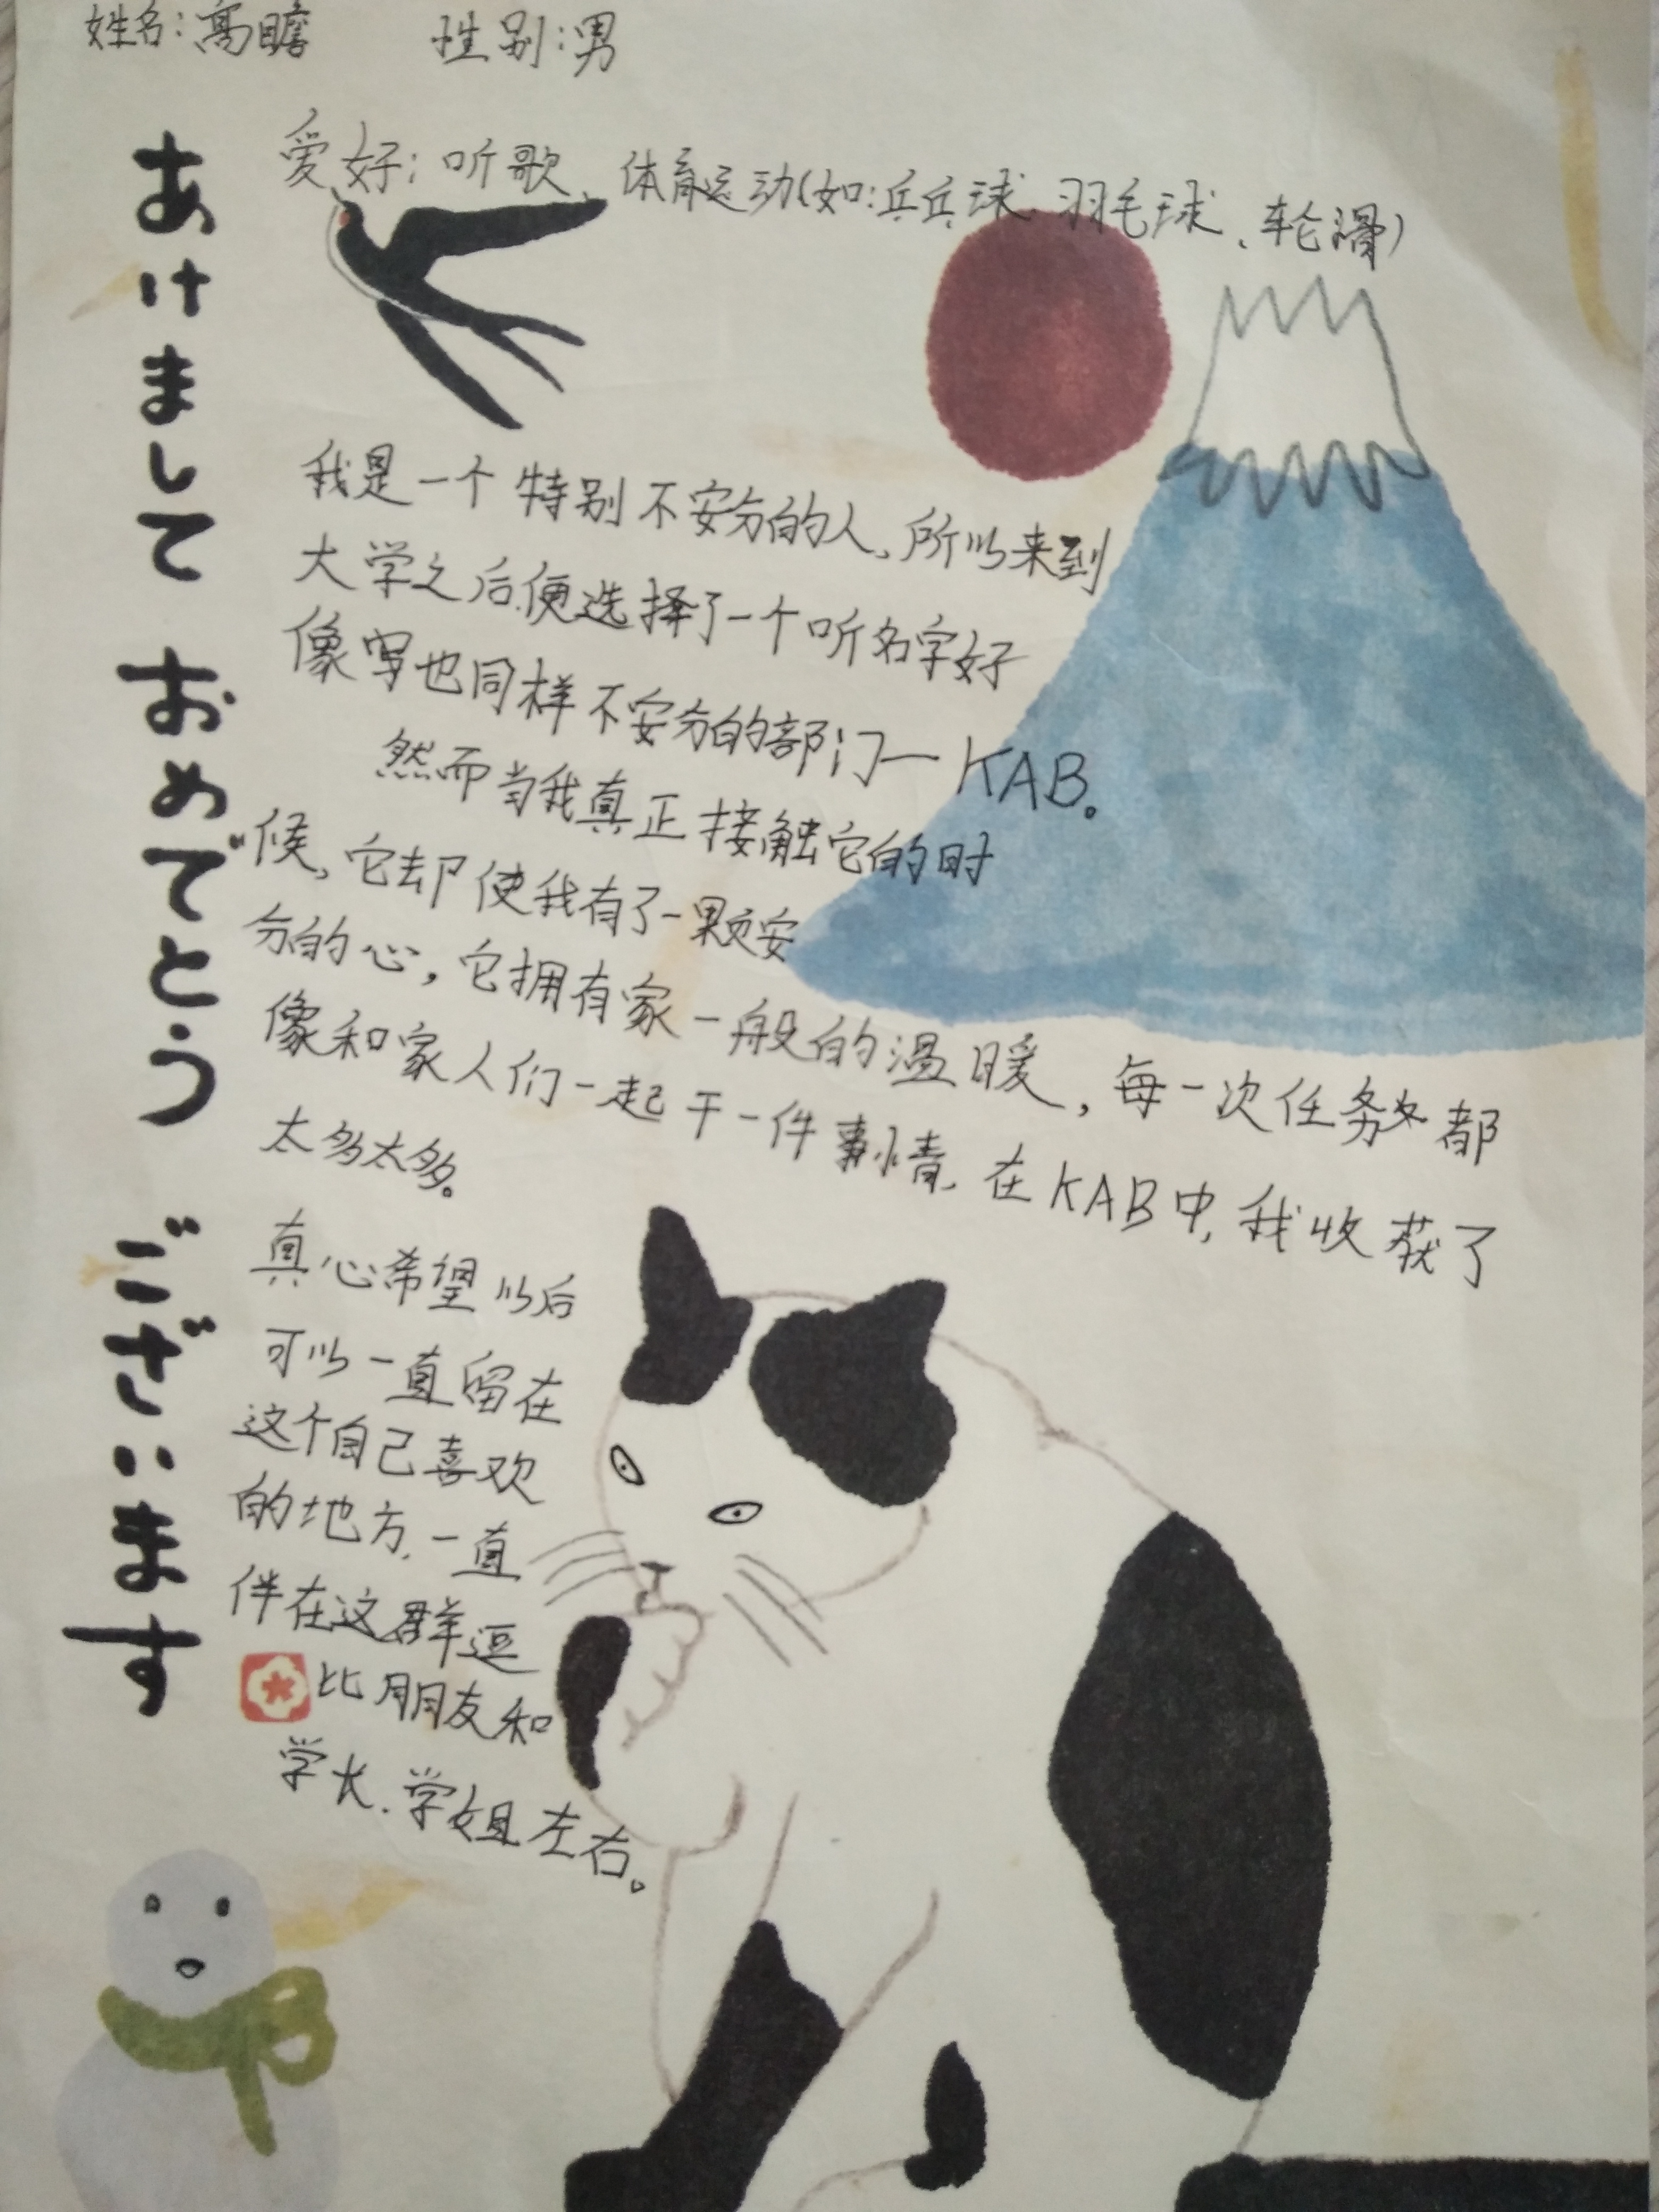 姓名：高瞻　性别：男
爱好：听歌、体育运动(如：乒乓球、羽毛球、轮滑)
我是一个特别不安分的人，所以来到
大学之后，便选择了一个听名字好
像写也同样不安分的部门—KAB。
然而当我真正接触它的时
候，它却使我有了一颗安
分的心，它拥有家一般的温暖，每一次任务都
像和家人们一起干一件事情，在KAB中，我收获了
太多太多。
真心希望以后
可以一直留在
这个自己喜欢
的地方，一直
伴在这群逗
比朋友和
学长、学姐左右。
あけまして おめでとう ございます